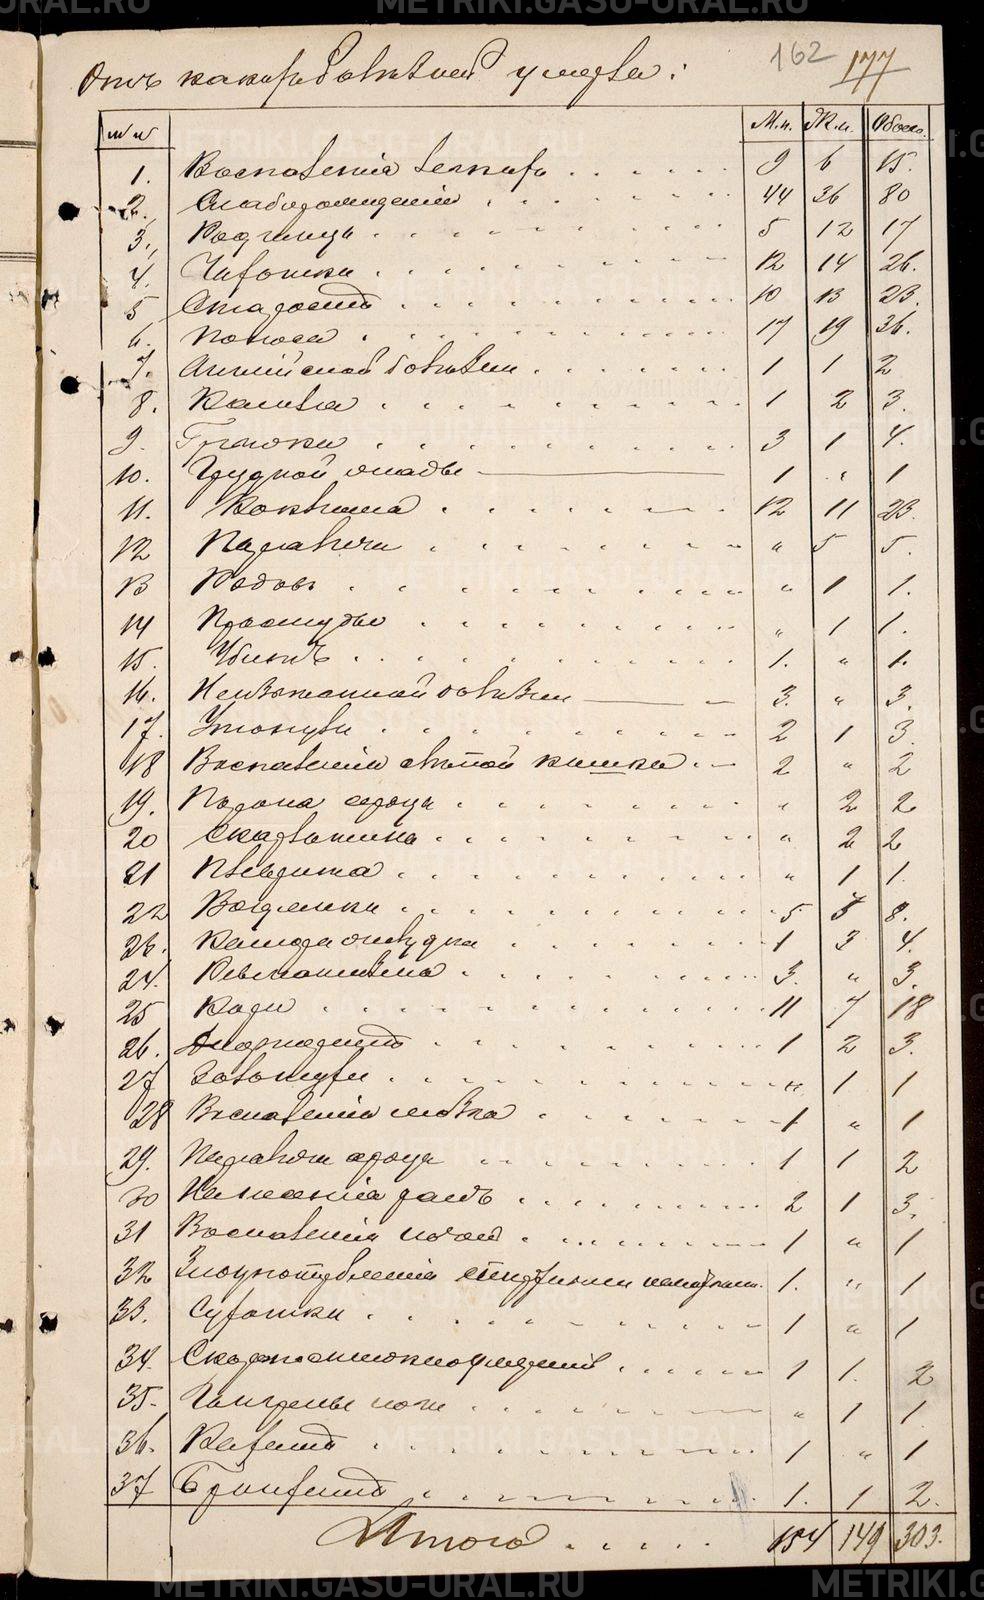 162
177
Отъ какихъ болѣзней умерли:
№ №
М.п. Ж.п. Обоего.
1. Воспаленія легкихъ 9 6 15.
2. Слаборожденія 44 36 80
3. Родимца 5 12 17
4. Чахотки 12 14 26.
5 Старости 10 13 23.
6. Поноса 17 19 36.
7. Англійской болѣзни 1 1 2
8. Кашля 1 2 3.
9. Горячки 3 1 4.
10. Грудной жабы 1 " 1
11. Коклюша 12 11 23.
12 Паралича " 5 5.
13 Родовъ " 1 1.
14 Простуды " 1 1.
15. Убитъ 1. " 1.
16. Неизвѣстной болѣзни 3. " 3.
17. Утонули 2 1 3.
18 Воспаленія слѣпой кишки 2 " 2
19. Порока сердца " 2 2.
20 Скарлатина " 2 2
21 Плеврита " 1 1.
22 Водянки 5 3 8.
23. Катара желудка 1 3 4.
24. Ревматизма 3. " 3.
25 Кори 11 7 18
26. 1 2 3.
27 Золотухи " 1 1
28 Воспаленія мозга 1 " 1
29. Паралича сердца 1 1 2
30 2 1 3.
31 Воспаленія почекъ 1 " 1
32 Злоупотребленія спиртными напитками. 1. " 1
33. Сухотки 1 " 1
34. 1 1. 2
35. Гангрены ноги " 1 1.
36. 1 " 1
37 Бронхита 1. 1 2.
Итого 154 149 303.
METRIKI.GASU-URAL.RU